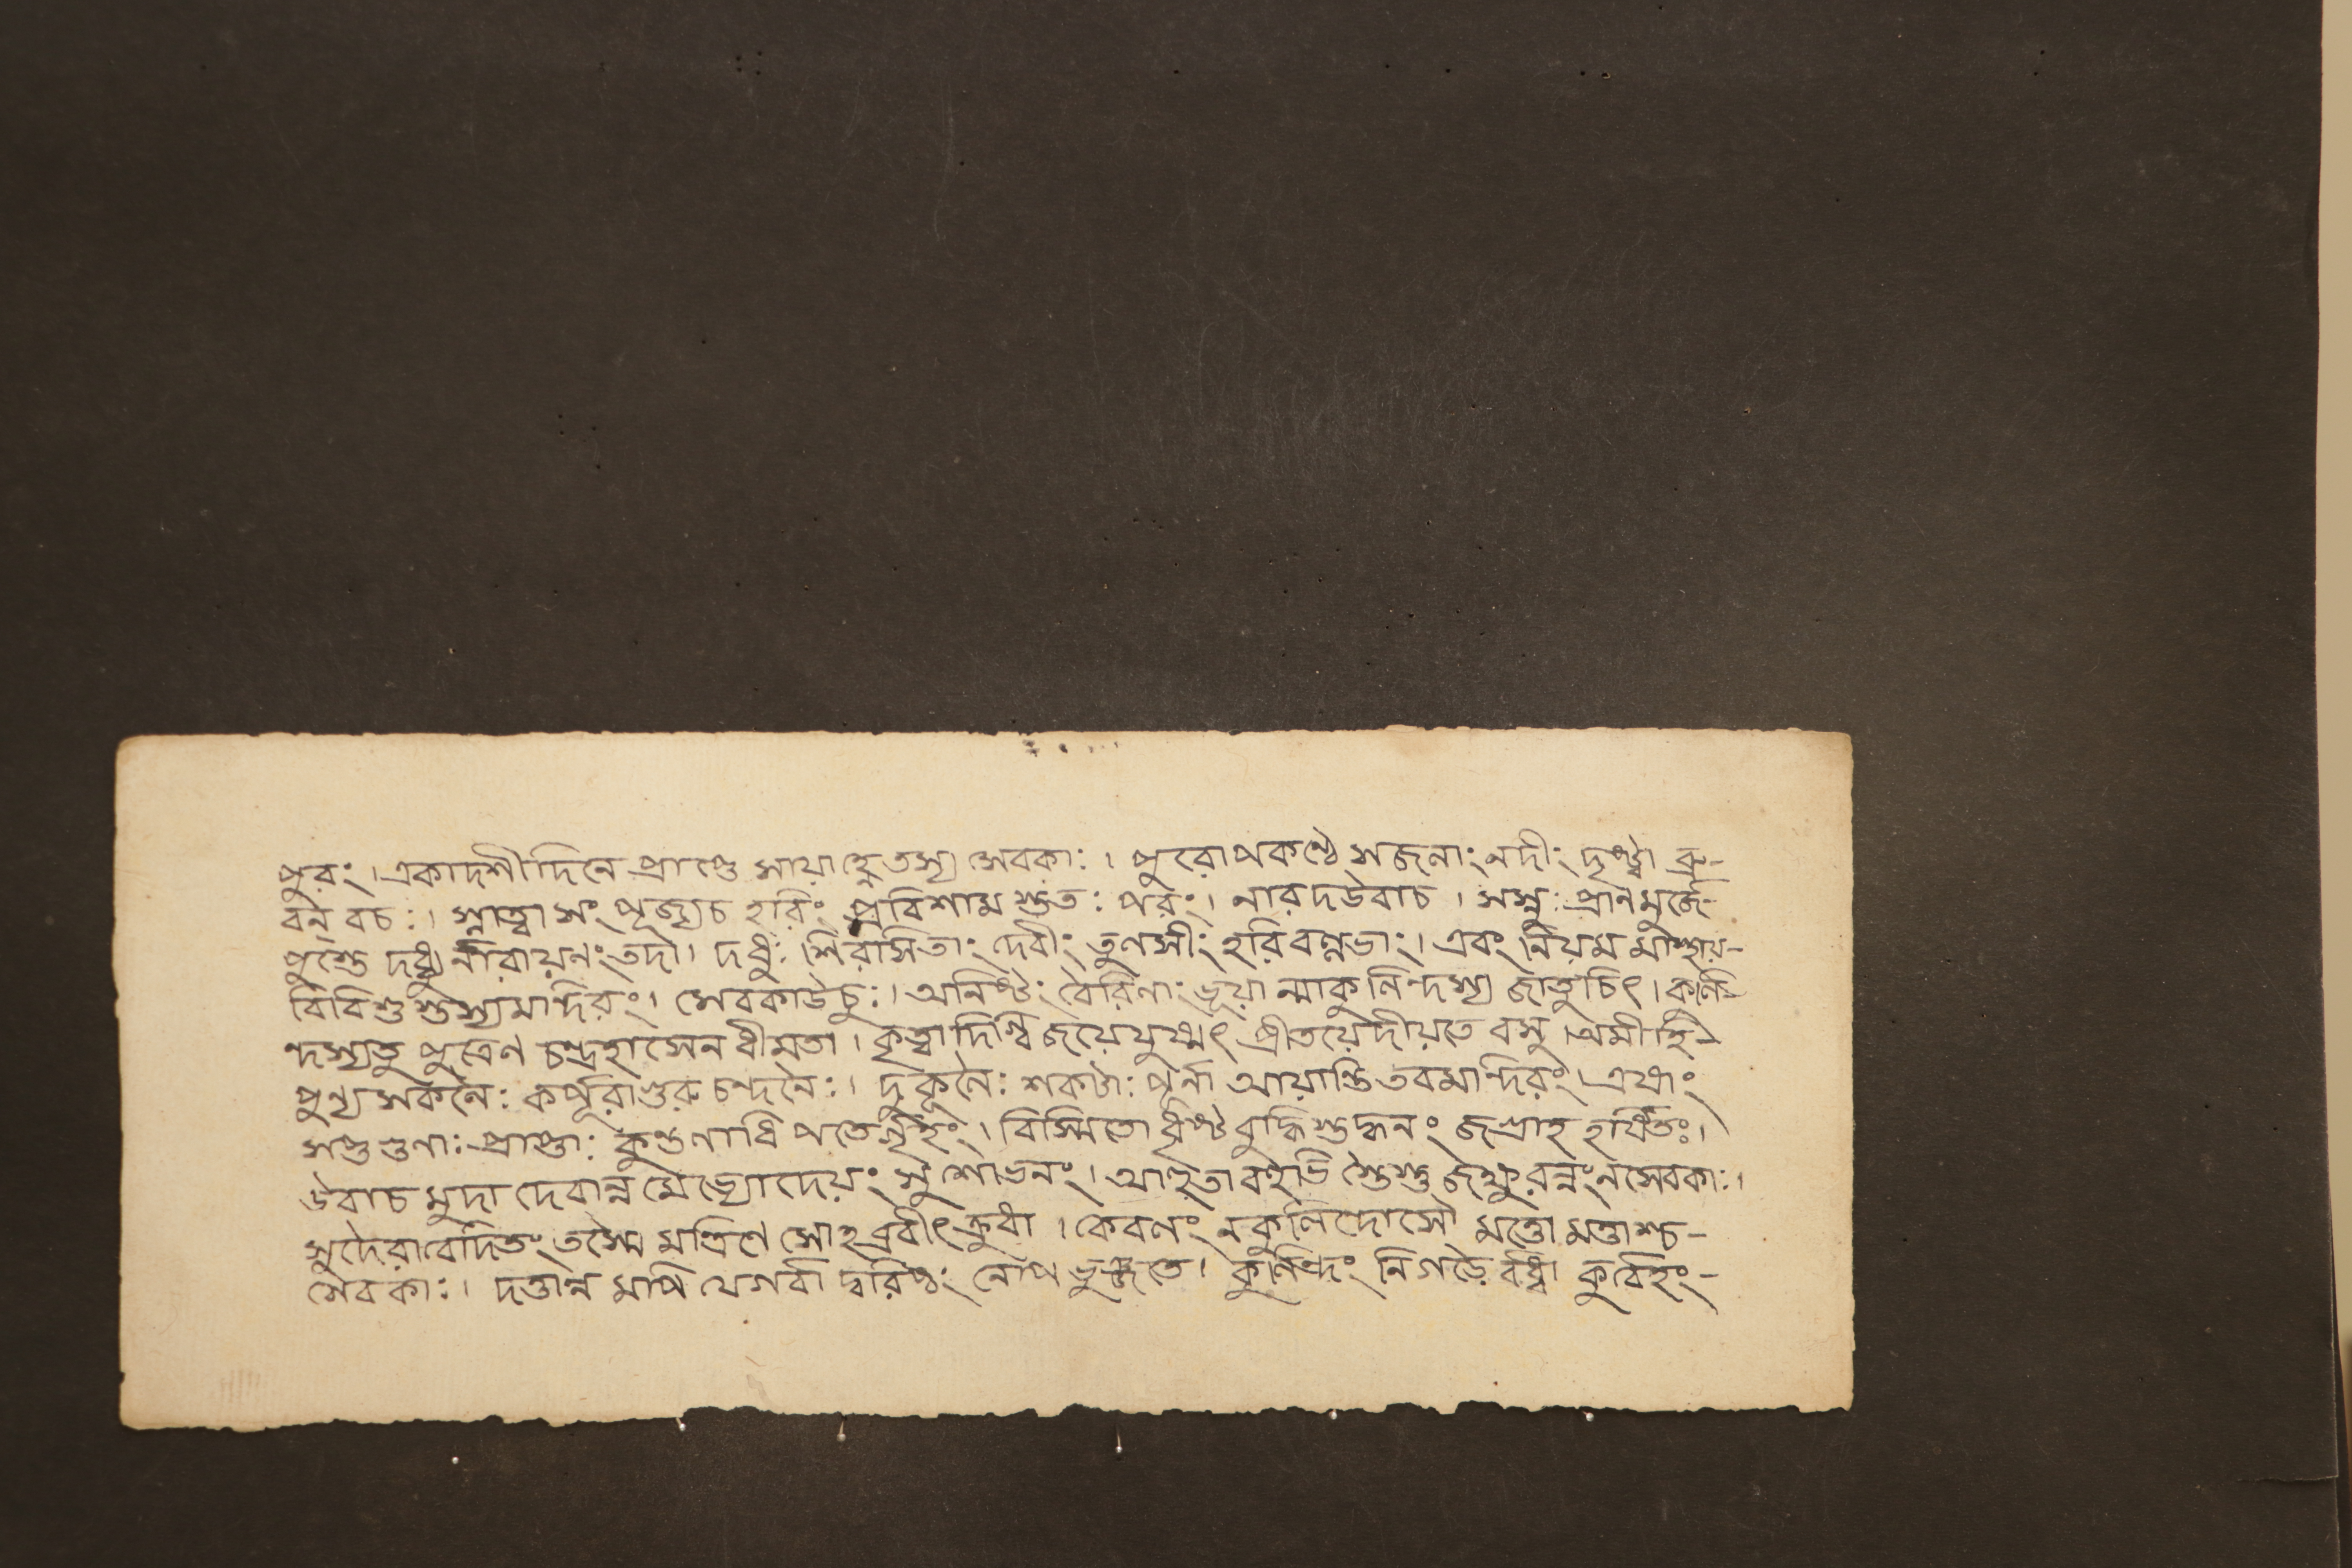 পুরং। একাদশী দিনে প্রাপ্তে সায়াহ্নে তস্য সেবকাঃ। পুরোপকণ্ঠে সজলাং নদীং দৃষ্ট্বা ব্রু-
বন্ বচঃ। স্নাত্বা সংপূজ্য চ হরিং প্রবিশাম স্ততঃ পরং। নারদউবাচ। সস্নুঃ প্রাণমুর্জে-
পুস্তে দধ্যুর্নারায়নং তদা। দধুঃ শিরসি তাং দেবীং তুলসীং হরিবল্লভাং। এবং নিয়মমাস্থায়-
বিবিশু স্তস্য মন্দিরং। সেবকাউচুঃ। অনিষ্টং বৈরিণাং ভূয়ান্মাকুলিন্দস্য জাতুচিৎ। কুলি-
ন্দস্যতু পুত্রেণ চন্দ্রহাসেন ধীমতা। কৃত্বা দিগ্বিজয়ে যুষ্মৎ প্রীতয়ে দীয়তে বসু। অমী হি-
পুণ্য সকলৈঃ কর্পূরাগুরুচন্দনৈঃ। দুকূলৈঃ শকটাঃ পূর্ণা আয়ান্তি তব মন্দিরং। এষাং
সপ্তগুনাঃ প্রাপ্তাঃ কুন্তলাধিপতের্গৃহং। বিস্মিতো ধৃষ্টবুদ্ধিস্তদ্ধনং জগ্রাহ হর্ষিতঃ।
উবাচ মুদা দেবান্নমেভ্যোদেয়ং সুশোভনং। আহূতা বহুভি স্তৈস্তু জক্ষুরন্নং ন সেবকাঃ।
সুদৈরাবেদিতং তস্মৈ মন্ত্রিণে সোহব্রবীৎ ক্রুধা। কেবলং ন কুলিন্দোসৌ মত্তো মত্তাশ্চ-
সেবকাঃ। দত্তান্নমপি যেগর্বা দ্বরিষ্ঠং নোপভুঞ্জতে। কুলিন্দং নিগড়ৈ র্বধ্বা কুর্বেহং-